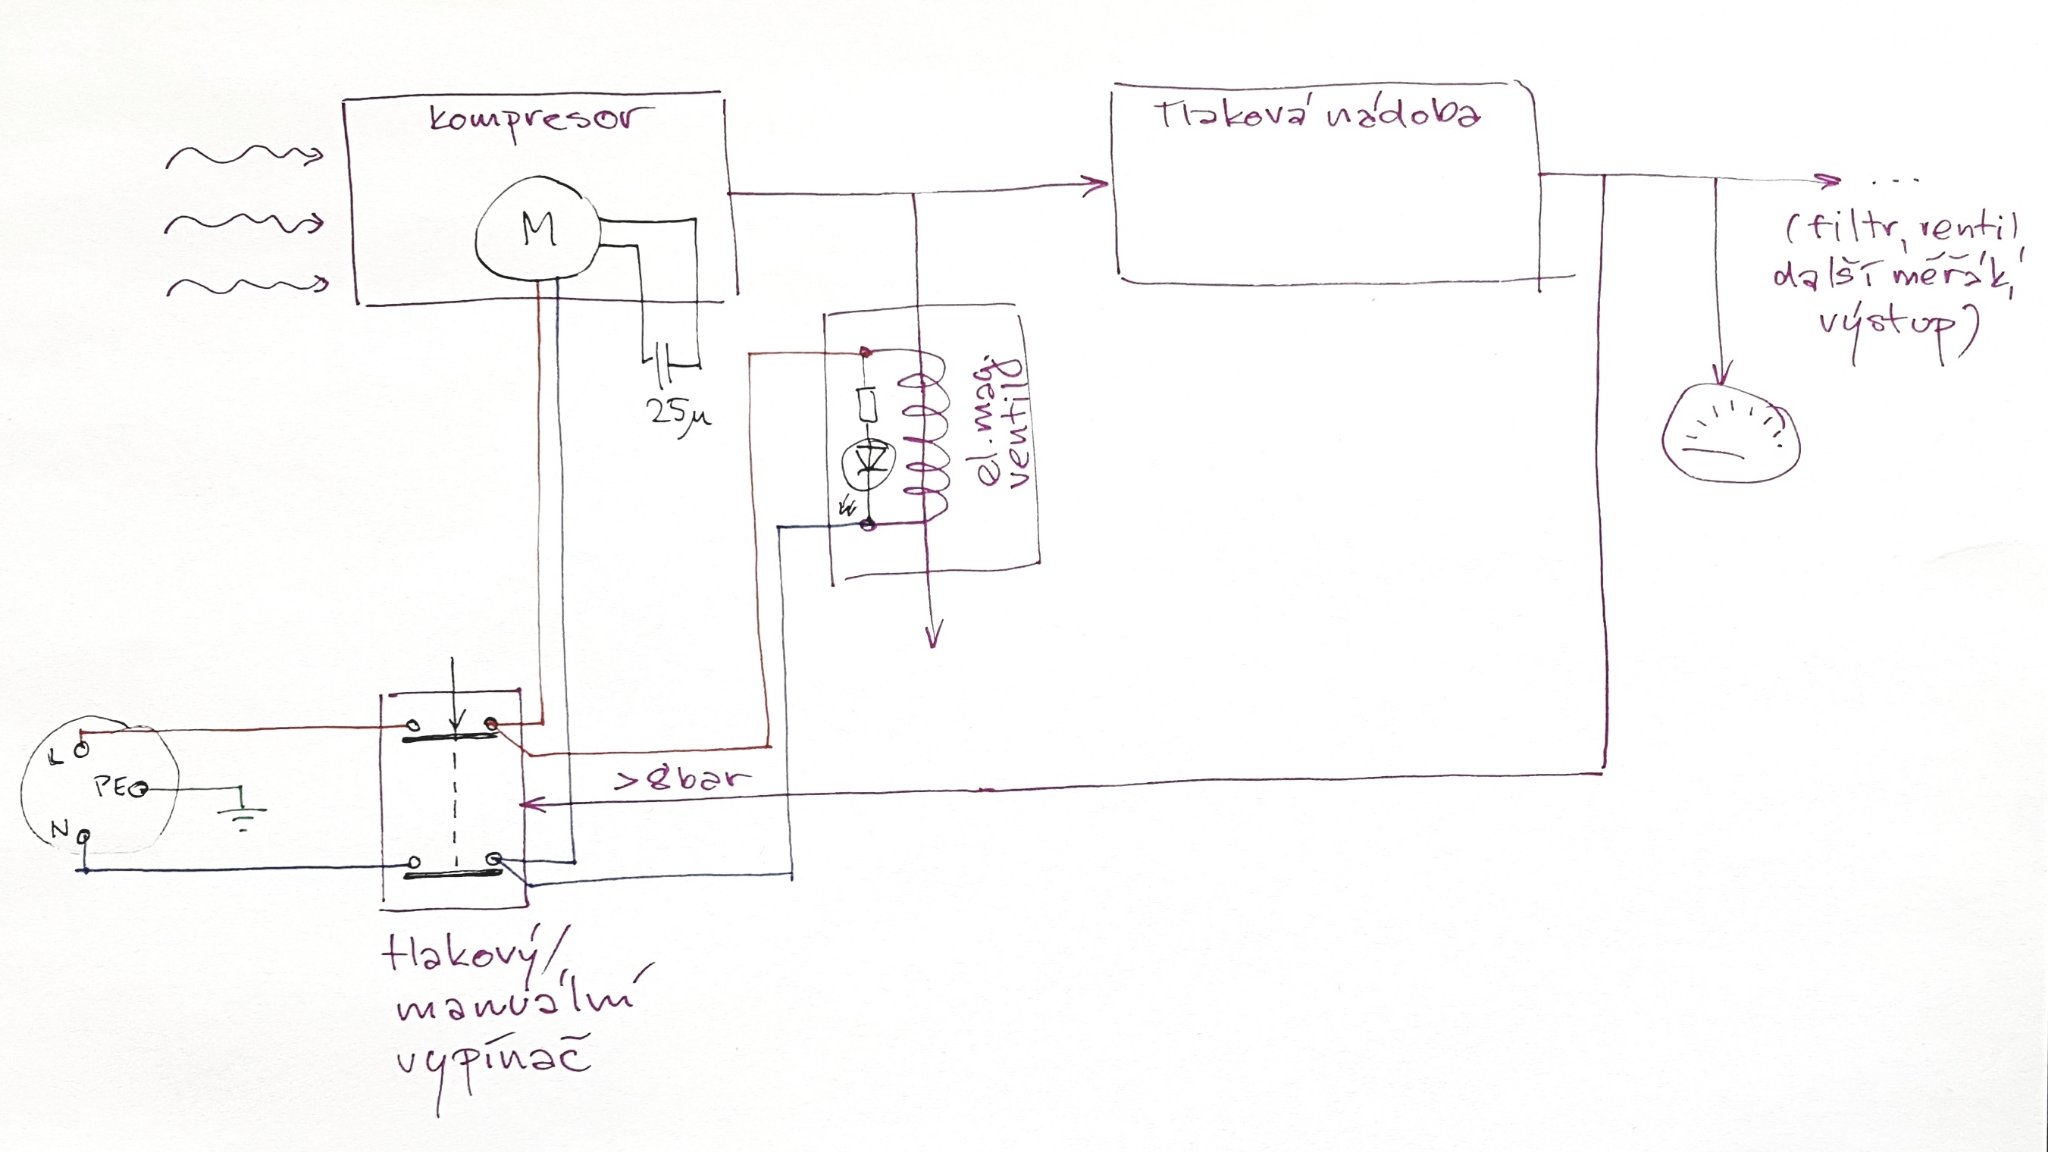 kompresor
Tlaková nádoba
M
...
(filtr, ventil,
další měřák,
výstup)
25μ
el.mag.
ventil
L
PE
N
>8bar
tlakový/
manuální
vypínač